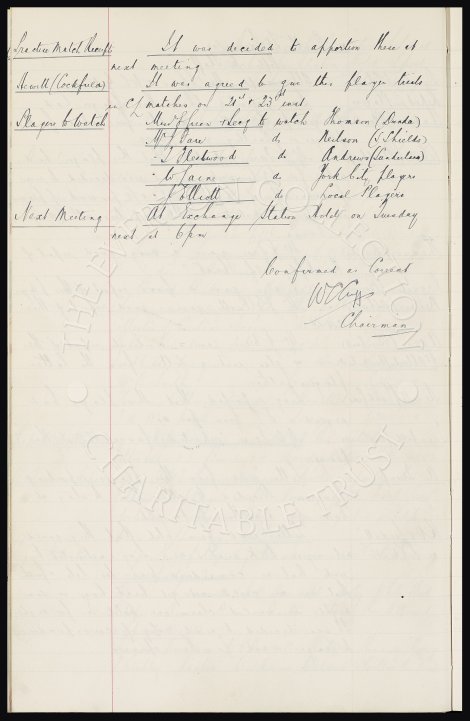 Practice Match Receipts It was decided to apportion these at
next meeting
Hewitt (Cockfield) It was agreed to give this player trials
in C/ matches on 21st & 23rd inst
Players to Watch Messrs Green & to watch Thomson (Dundee)
Mr do Neilson (S Shields)
" Fleetwood do Andrews (Sunderland)
" do York City players
" J Elliott do Local Players
Next Meeting At Exchange Station Hotel on Tuesday
next at 6pm
Confirmed as Correct
W C Cuff
Chairman
THE EVERTON COLLECTION
CHARITABLE TRUST